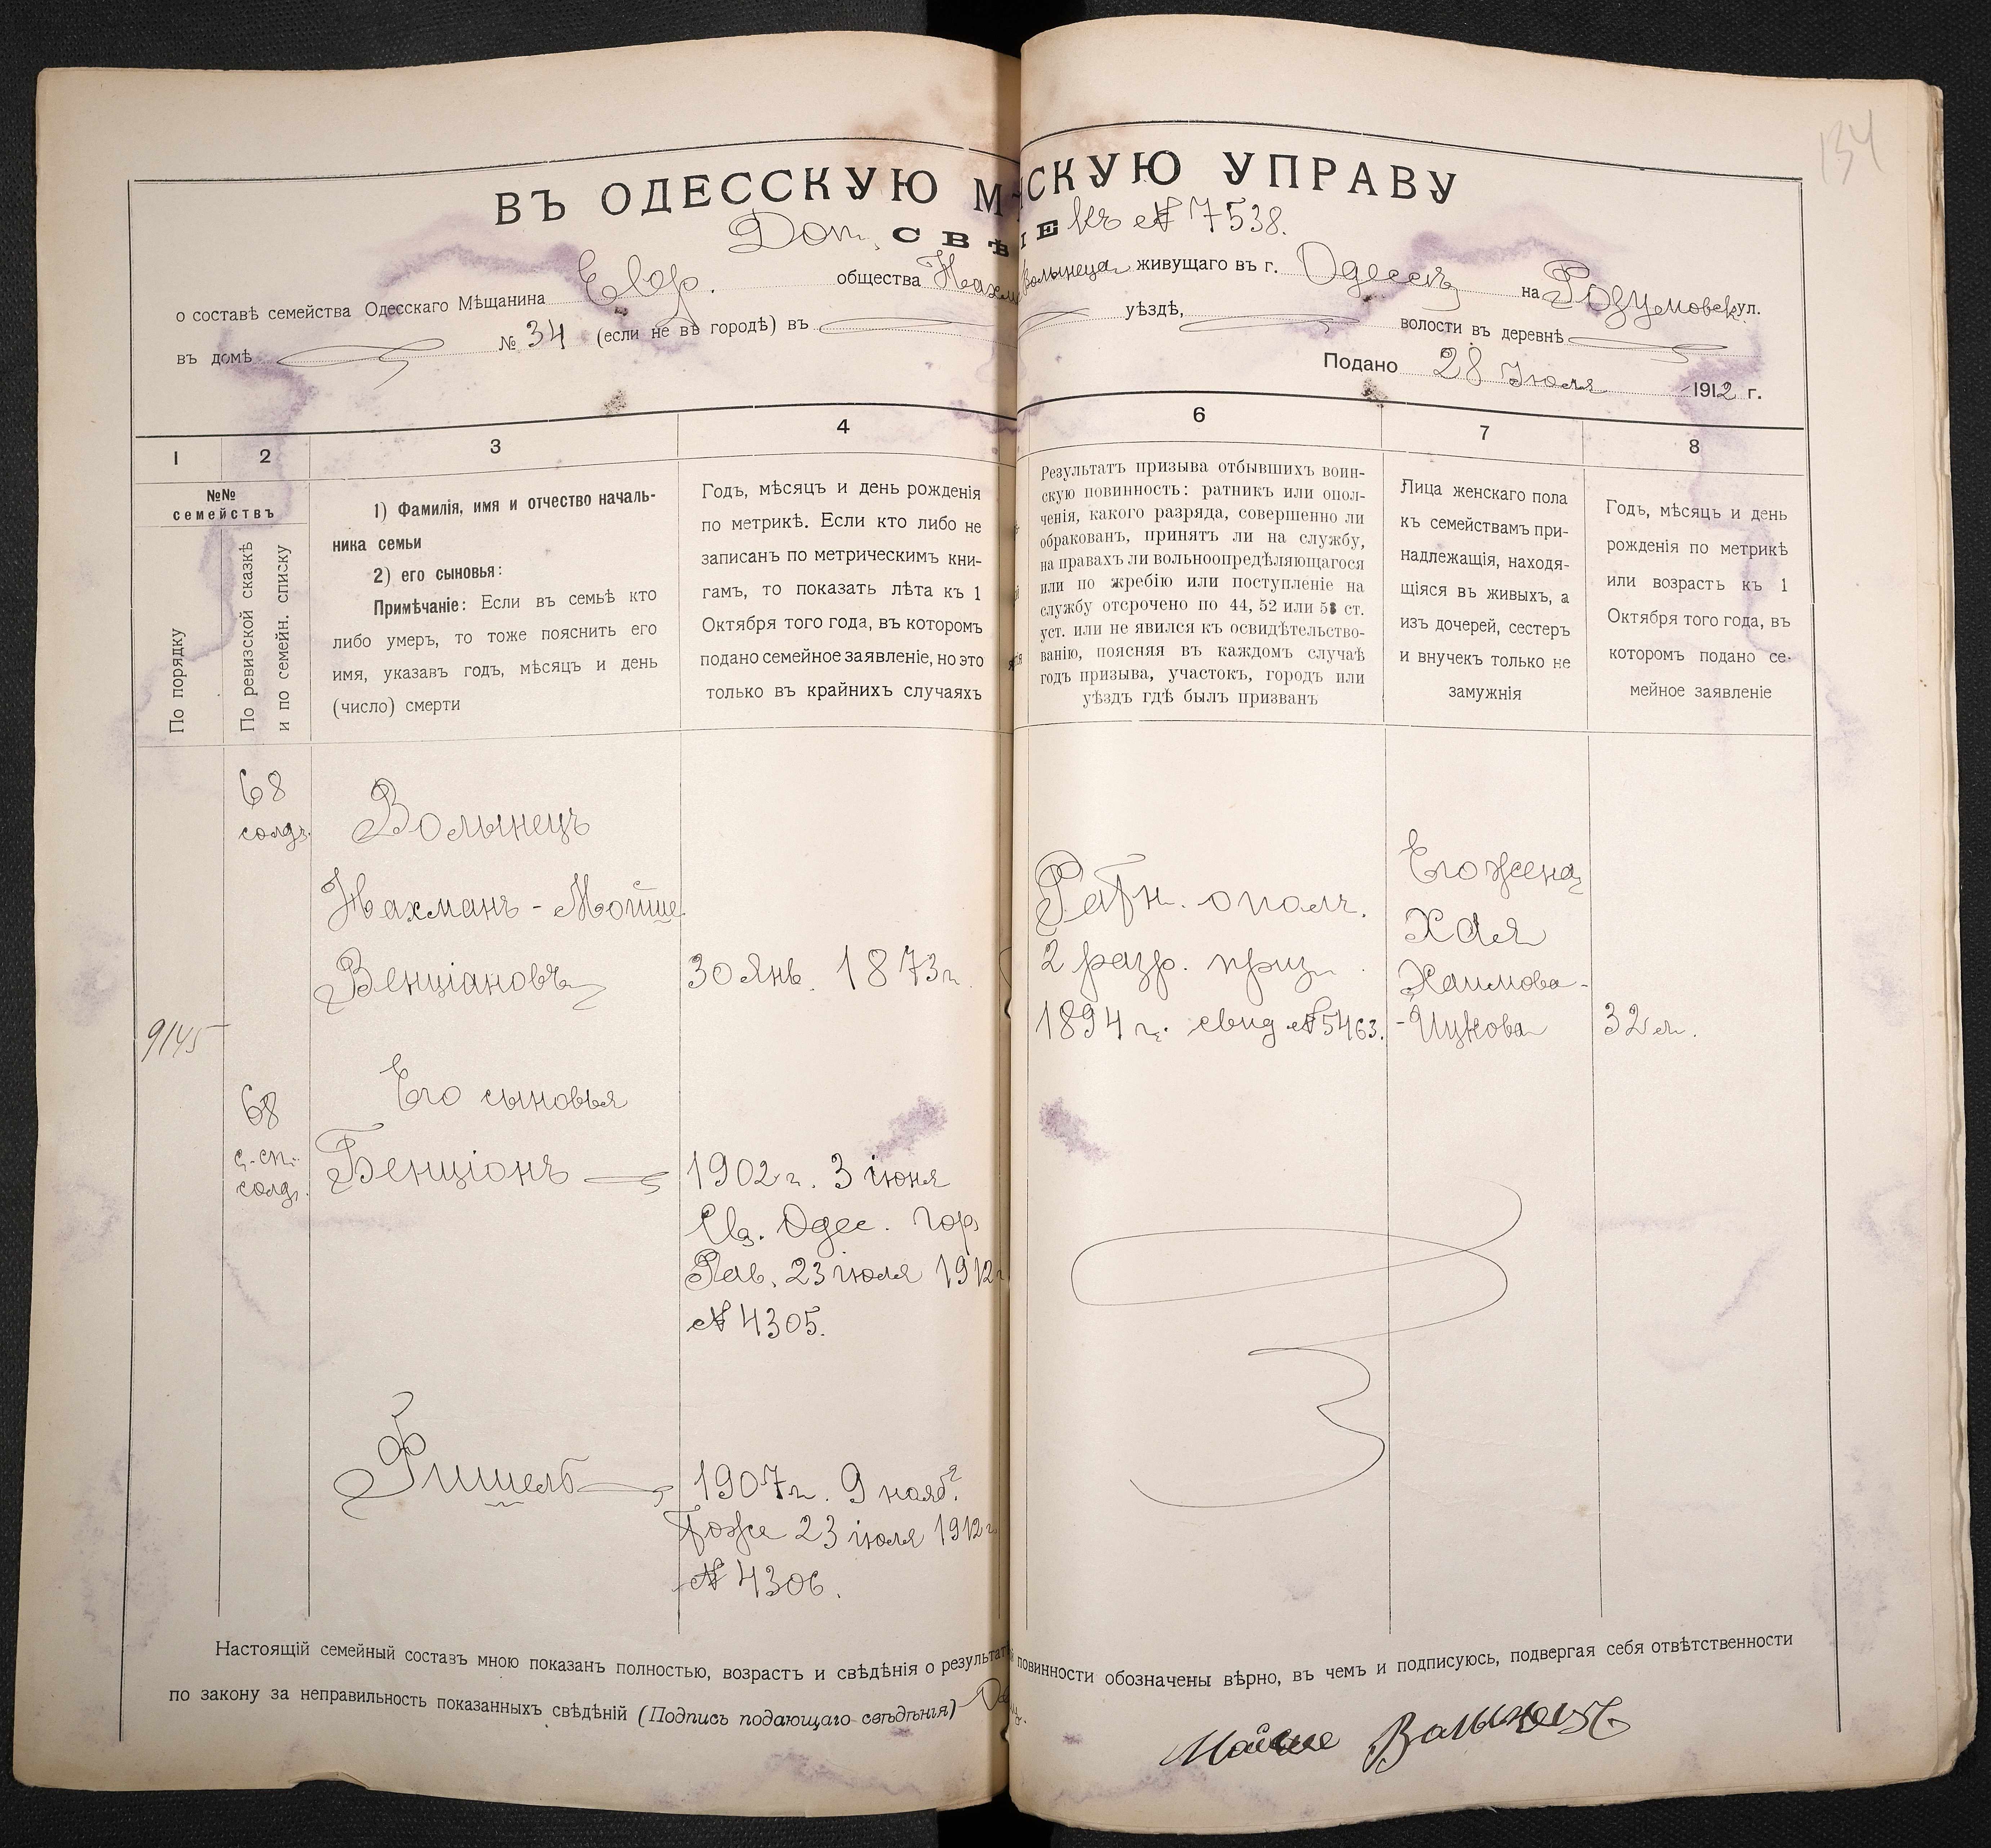 134
ВЪ ОДЕССКУЮ М СКУЮ УПРАВУ
Доп. СВѢ ІЕ къ № 7538.
о составѣ семейства Одесскаго Мѣщанина Евр. общества Нахм Волынеца живущаго въ г. Одессѣ на Розумовск. ул.
въ домѣ № 34 (если не въ городѣ) въ уѣздѣ, волости въ деревнѣ
Подано 28 Июля 1912 г.
1 2 3 4 6 7 8
№№ семействъ
По порядку
По ревизской сказкѣ
и по семейн. списку
1) Фамилія, имя и отчество началь-
ника семьи
2) его сыновья:
Примѣчаніе: Если въ семьѣ кто
либо умеръ, то тоже пояснить его
имя, указавъ годъ, мѣсяцъ и день
(число) смерти
Годъ, мѣсяцъ и день рожденія
по метрикѣ. Если кто либо не
записанъ по метрическимъ кни-
гамъ, то показать лѣта къ 1
Октября того года, въ которомъ
подано семейное заявленіе, но это
только въ крайнихъ случаяхъ
Результатъ призыва отбывшихъ воин-
скую повинность: ратникъ или опол-
ченія, какого разряда, совершенно ли
обракованъ, принятъ ли на службу,
на правахъ ли вольноопредѣляющагося
или по жребію или поступленіе на
службу отсрочено по 44, 52 или 53 ст.
уст. или не явился къ освидѣтельство-
ванію, поясняя въ каждомъ случаѣ
годъ призыва, участокъ, городъ или
уѣздъ гдѣ былъ призванъ
Лица женскаго пола
къ семействамъ при-
надлежащія, находя-
щіяся въ живыхъ, а
изъ дочерей, сестеръ
и внучекъ только не
замужнія
Годъ, мѣсяцъ и день
рожденія по метрикѣ
или возрасть къ 1
Октября того года, въ
которомъ подано се-
мейное заявленіе
9145
68
солд.
Волынецъ
Нахманъ-Мойше
Венціановъ
30 Янв. 1873 г.
Ратн. ополч.
2 разр. приз.
1894 г. свид №5463.
Его жена
Хая
Хаимова-
-Ицкова
32 л.
Его сыновья
68
с. сп.
солд.
Бенціонъ
1902 г. 3 іюня
Св. Одес. гор
Рав. 23 іюля 1912 г
№ 4305.
Фишель
1907 г. 9 нояб.
Тоже 23 іюля 1912 г
№ 4306.
Настоящій семейный составъ мною показанъ полностью, возрастъ и свѣдѣнія о результат повинности обозначены вѣрно, въ чемъ и подписуюсь, подвергая себя отвѣтственности
по закону за неправильность показанныхъ свѣдѣній (Подпись подающаго свѣдѣнія)
Мойше Волынецъ